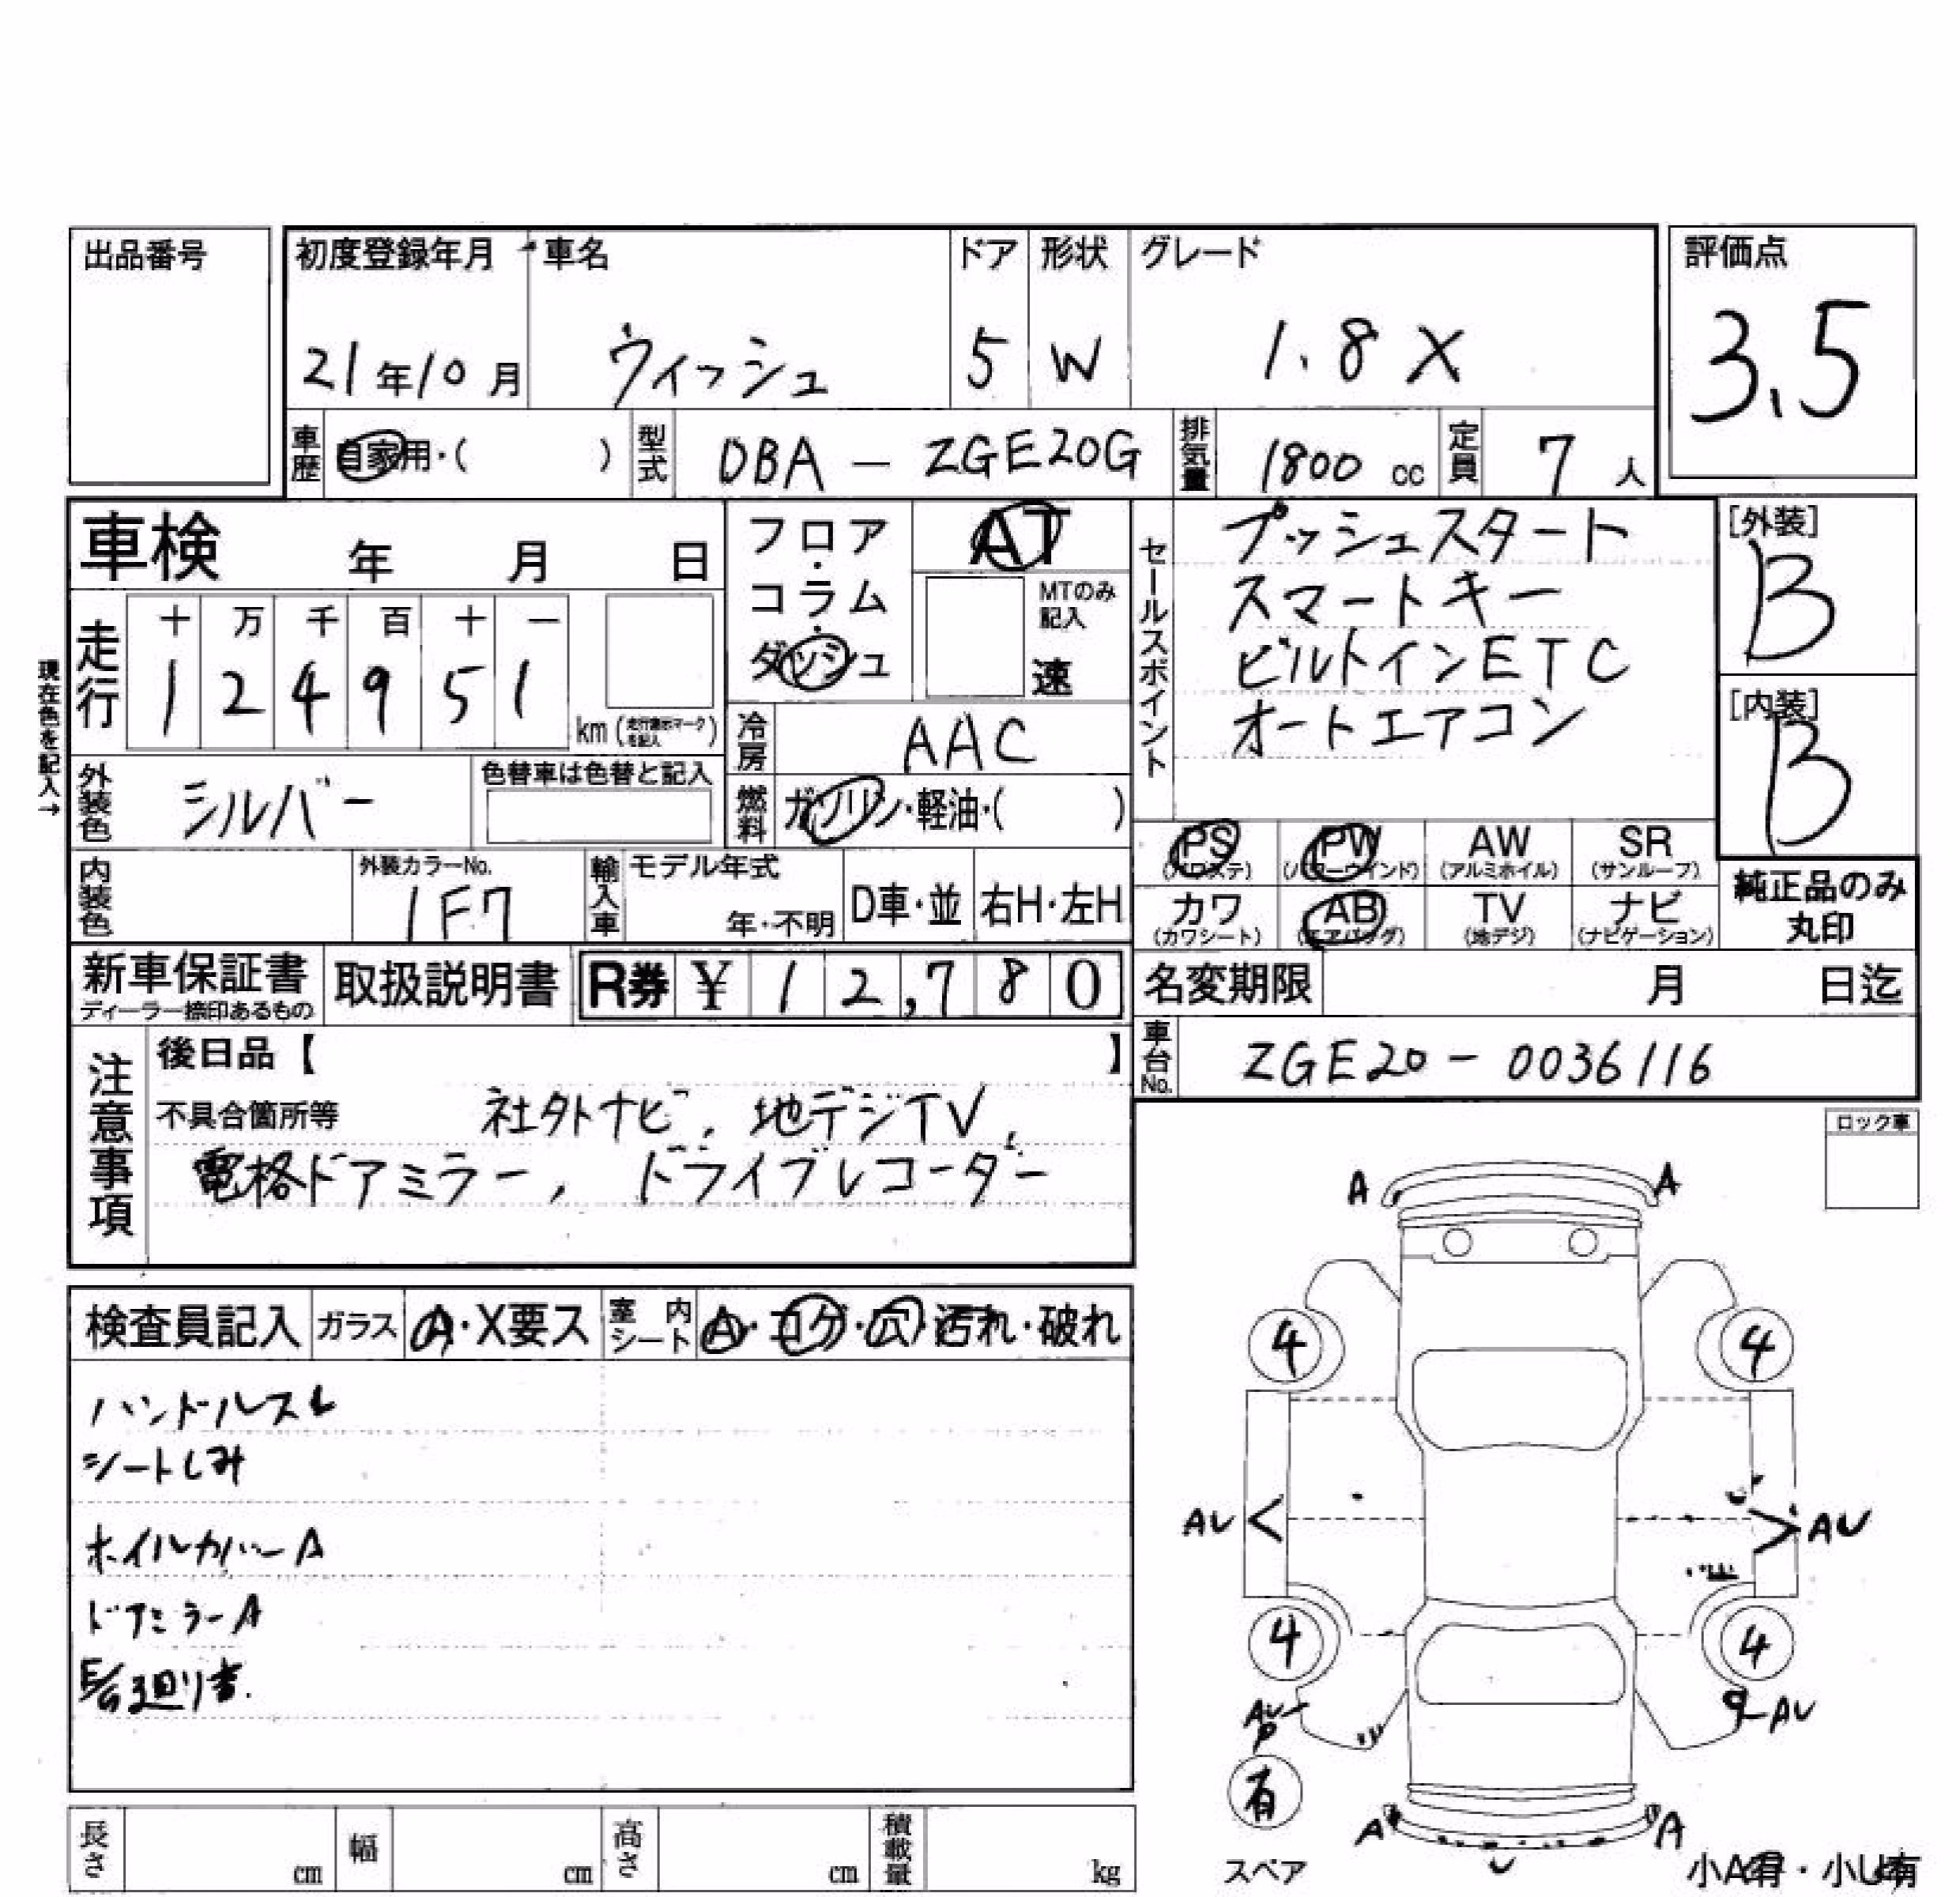 出品番号
初度登録年月 車名 ドア 形状 グレード 評価点
21年10月 ウィッシュ 5 W 1.8X 3.5
車歴 自家用・( ) 型式 DBA － ZGE20G 排気量 1800 cc 定員 7 人
車検 年 月 日
フロア・コラム・ダッシュ
AT
MTのみ記入
速
セールスポイント
プッシュスタート
スマートキー
ビルトインETC
オートエアコン
[外装]
B
[内装]
B
現在色を記入→
走行 十 万 千 百 十 一
1 2 4 9 5 1 km (走行表示マークを記入)
冷房 AAC
外装色 シルバー 色替車は色替と記入
燃料 ガソリン・軽油・( )
PS (パワステ) PW (パワーウインド) AW (アルミホイル) SR (サンルーフ)
カワ (カワシート) AB (エアバッグ) TV (地デジ) ナビ (ナビゲーション)
純正品のみ
丸印
内装色 外装カラーNo. 1F7 輸入車 モデル年式 年・不明 D車・並 右H・左H
新車保証書 ディーラー捺印あるもの 取扱説明書 R券 ¥ 12,780
名変期限 月 日迄
車台No. ZGE20－0036116
注意事項
後日品【 】
不具合箇所等 社外ナビ, 地デジTV,
電格ドアミラー, ドライブレコーダー
ロック車
検査員記入 ガラス A・X要ス 室内シート A・コゲ・穴・汚れ・破れ
ハンドルスレ
シートしみ
ホイルカバーA
ドアミラーA
E/G廻り書.
A A
4 4
AU AU
4 4
AU P AU
有
A A
U
スペア
小A有・小U有
長さ cm 幅 cm 高さ cm 積載量 kg